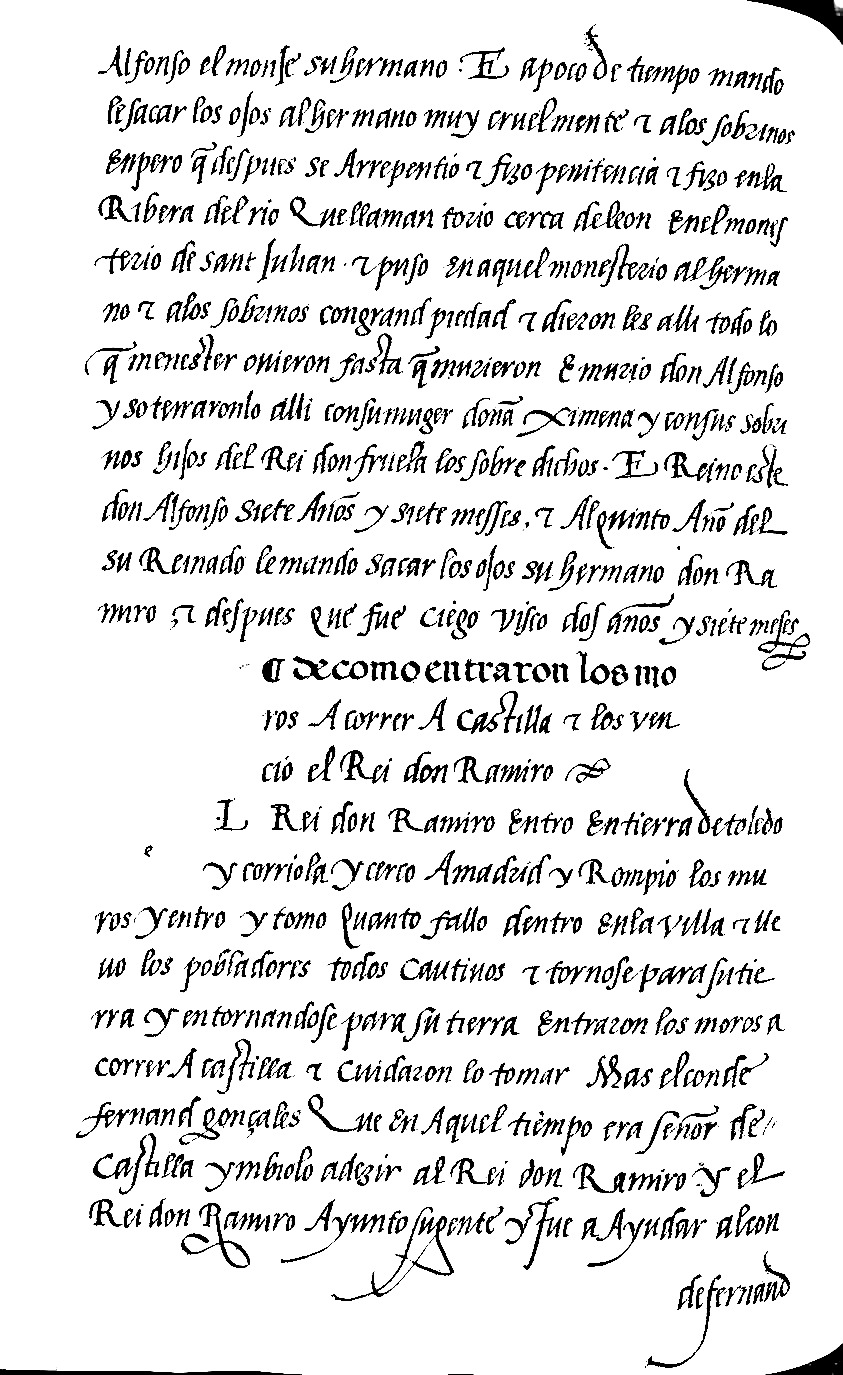 Alfonso el monje su hermano · E a poco de tiempo mando
le sacar los ojos al hermano muy cruelmente τ a los sobrinos
Enpero q̄ despues se Arrepentio τ fizo penitencia τ fizo en la
Ribera del rio Que llaman torio cerca de leon En el mones
terio de sant Julian · τ puso En aquel monesterio al herma
no τ a los sobrinos con grand piedad τ dieron les alli todo lo
q̄ menester ouieron fasta q̄ murieron E murio don Alfonso
y soterraronlo alli con su muger doña Ximena y con sus sobri
nos hijos del Rei don fruela los sobre dichos · E Reino este
don Alfonso siete Años y siete messes, τ Al quinto Año del
su Reinado le mando sacar los ojos su hermano don Ra
miro τ despues que fue ciego visco dos años y siete meses
¶ de como entraron los mo
ros A correr A castilla τ los ven
cio el Rei don Ramiro
e L Rei don Ramiro Entro En tierra de toledo
y corriola y cerco A madrid y Rompio los mu
ros y entro y tomo quanto fallo dentro En la villa τ lle
uo los pobladores todos cautiuos τ tornose para su tie
rra y en tornandose para su tierra Entraron los moros a
correr A castilla τ cuidaron lo tomar Mas el conde
fernand gonçales Que En Aquel tiempo era señor de
castilla ymbiolo a dezir al Rei don Ramiro y el
Rei don Ramiro Ayunto su gente y fue a Ayudar al con
de fernand